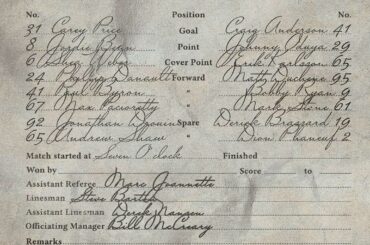 No. Position No.
31 Carey Price Goal Craig Anderson 41
8 Jordie Benn Point Johnny Oduya 29
6 Shea Weber Cover Point Erik Karlsson 65
24 Phillip Danault Forward Matt Duchene 95
41 Paul Byron " Bobby Ryan 9
67 Max Pacioretty " Mark Stone 61
92 Jonathan Drouin Spare Derick Brassard 19
65 Andrew Shaw Dion Phaneuf 2
Match started at Seven O'clock Finished
Won by Score to
Assistant Referee Marc Joannette
Linesman Steve Barton
Assistant Linesman Derek Nansen
Officiating Manager Bill McCreary
Remarks